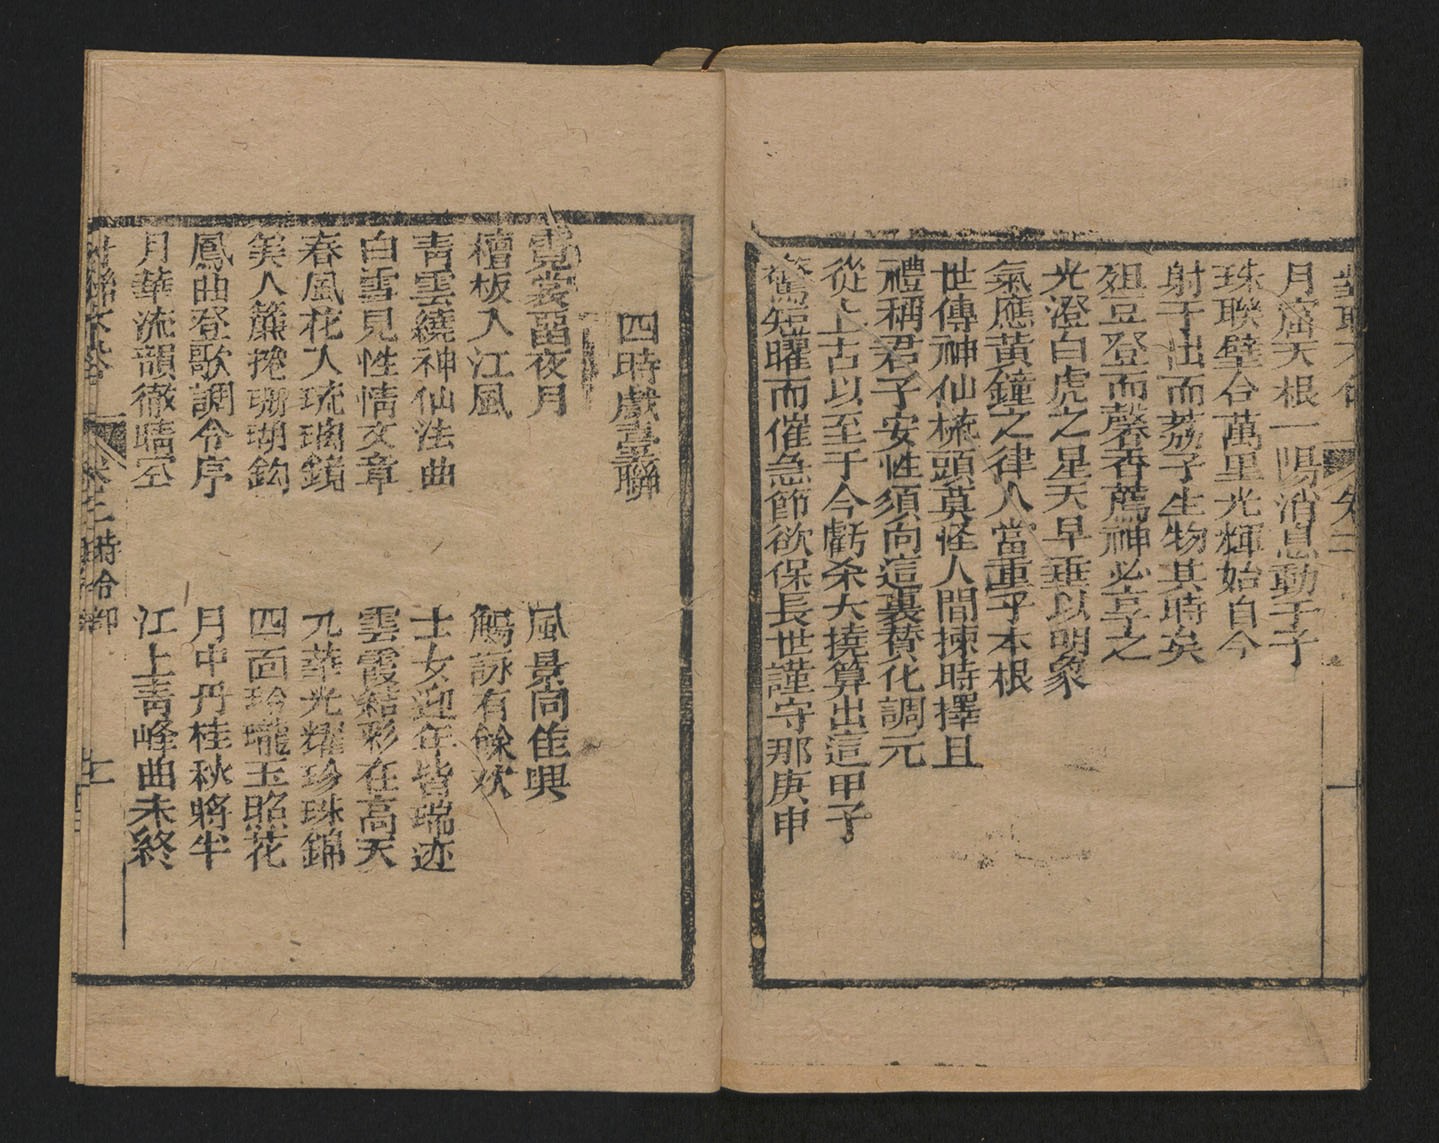 月窟天根一陽消息動于子
珠聯璧合萬里光輝始自今
射于出而荔子生物其時矣
俎豆登而馨香薦神必享之
光澄白虎之星天早垂以明象
氣應黃鐘之律人當重子本根
世傳神仙梳頭莫怪人間揀時擇且
禮稱君子安性須向這裏贊化調元
從上古以至于今虧杀大撓算出這甲子
驚短曜而催急節欲保長世謹守那庚申
四時戲臺聯
霓裳畱夜月
風景向佳興
檀板入江風
觴詠有餘欢
青雲繞神仙法曲
士女迎年皆瑞迹
白雪見性情文章
雲霞結彩在高天
春風花入琉璃鏡
九華光耀珍珠錦
美人簾捲珊瑚鈎
四面玲瓏玉照花
鳳曲登歌調令序
月中丹桂秋將半
月華流韻徹晴空
江上青峰曲未終
卷之 時令部